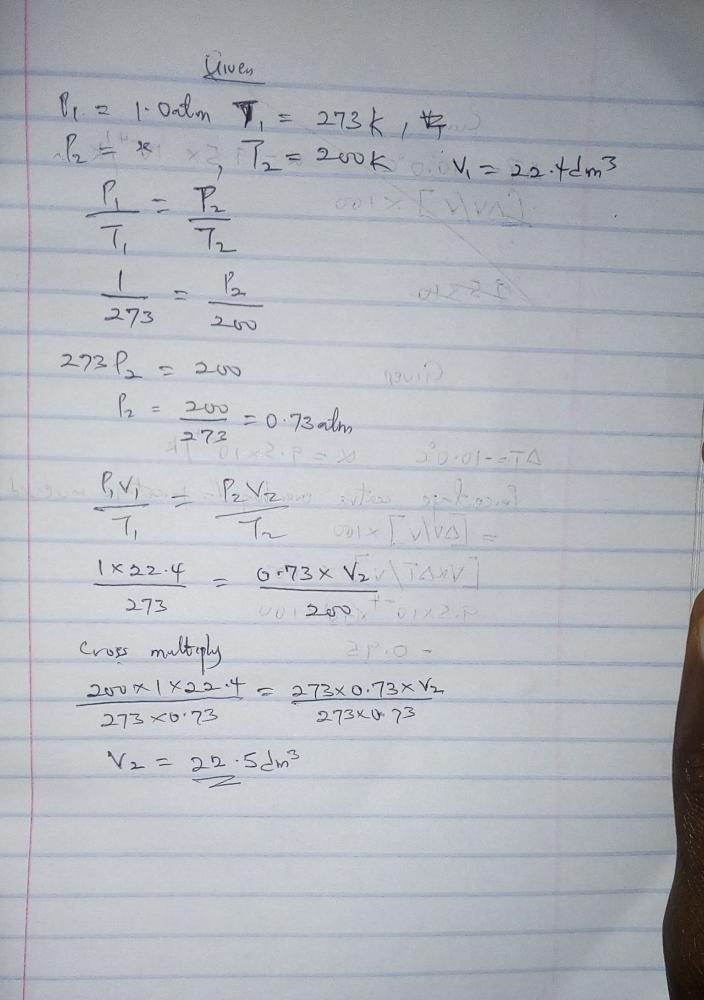 Given
P₁ = 1.0atm T₁ = 273k,
P₂ = x, T₂ = 200k V₁ = 22.4dm³
P₁/T₁ = P₂/T₂
1/273 = P₂/200
273P₂ = 200
P₂ = 200/273 = 0.73atm
P₁V₁/T₁ = P₂V₂/T₂
1×22.4/273 = 0.73×V₂/200
Cross multiply
200×1×22.4/273×0.73 = 273×0.73×V₂/273×0.73
V₂ = 22.5dm³